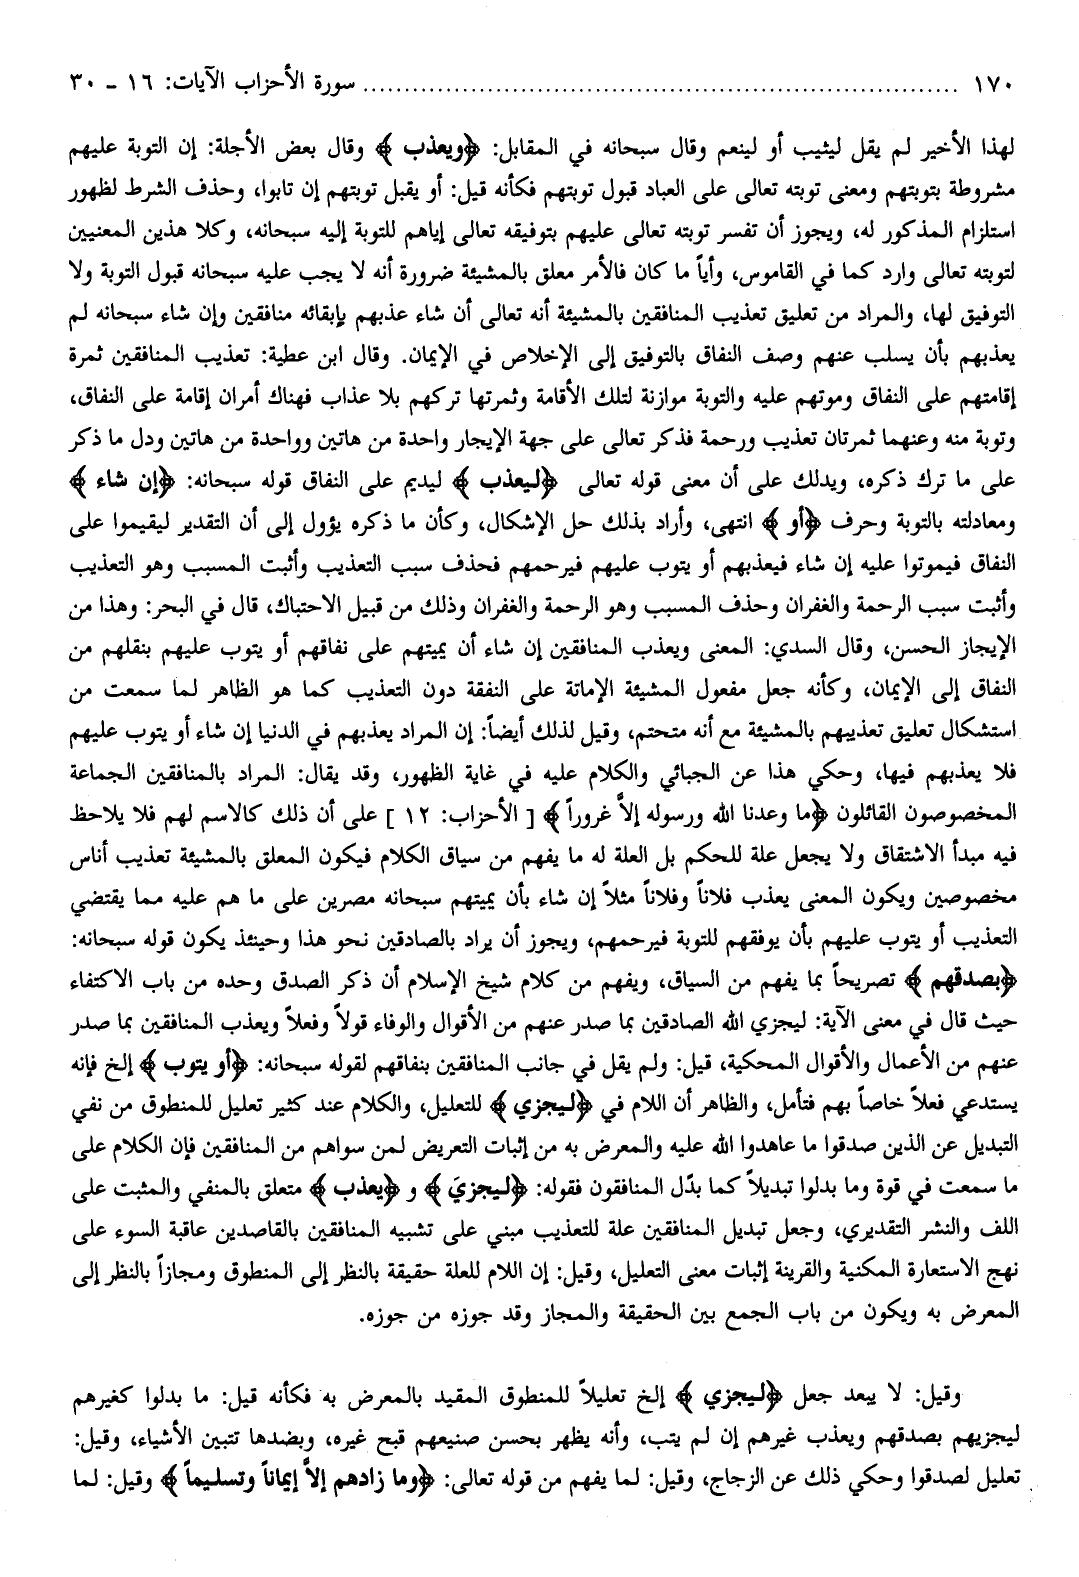 ١٧٠ ........................................................................ سورة الأحزاب الآيات: ١٦ ـ ٣٠
لهذا الأخير لم يقل ليثيب أو لينعم وقال سبحانه في المقابل: ﴿ويعذب﴾ وقال بعض الأجلة: إن التوبة عليهم
مشروطة بتوبتهم ومعنى توبته تعالى على العباد قبول توبتهم فكأنه قيل: أو يقبل توبتهم إن تابوا، وحذف الشرط لظهور
استلزام المذكور له، ويجوز أن تفسر توبته تعالى عليهم بتوفيقه تعالى إياهم للتوبة إليه سبحانه، وكلا هذين المعنيين
لتوبته تعالى وارد كما في القاموس، وأياً ما كان فالأمر معلق بالمشيئة ضرورة أنه لا يجب عليه سبحانه قبول التوبة ولا
التوفيق لها، والمراد من تعليق تعذيب المنافقين بالمشيئة أنه تعالى أن شاء عذبهم بإبقائه منافقين وإن شاء سبحانه لم
يعذبهم بأن يسلب عنهم وصف النفاق بالتوفيق إلى الإخلاص في الإيمان. وقال ابن عطية: تعذيب المنافقين ثمرة
إقامتهم على النفاق وموتهم عليه والتوبة موازنة لتلك الأقامة وثمرتها تركهم بلا عذاب فهناك أمران إقامة على النفاق،
وتوبة منه وعنهما ثمرتان تعذيب ورحمة فذكر تعالى على جهة الإيجار واحدة من هاتين وواحدة من هاتين ودل ما ذكر
على ما ترك ذكره، ويدلك على أن معنى قوله تعالى ﴿ليعذب﴾ ليديم على النفاق قوله سبحانه: ﴿إن شاء﴾
ومعادلته بالتوبة وحرف ﴿أو﴾ انتهى، وأراد بذلك حل الإشكال، وكأن ما ذكره يؤول إلى أن التقدير ليقيموا على
النفاق فيموتوا عليه إن شاء فيعذبهم أو يتوب عليهم فيرحمهم فحذف سبب التعذيب وأثبت المسبب وهو التعذيب
وأثبت سبب الرحمة والغفران وحذف المسبب وهو الرحمة والغفران وذلك من قبيل الاحتباك، قال في البحر: وهذا من
الإيجاز الحسن، وقال السدي: المعنى ويعذب المنافقين إن شاء أن يميتهم على نفاقهم أو يتوب عليهم بنقلهم من
النفاق إلى الإيمان، وكأنه جعل مفعول المشيئة الإماتة على النفقة دون التعذيب كما هو الظاهر لما سمعت من
استشكال تعليق تعذيبهم بالمشيئة مع أنه متحتم، وقيل لذلك أيضاً: إن المراد يعذبهم في الدنيا إن شاء أو يتوب عليهم
فلا يعذبهم فيها، وحكي هذا عن الجبائي والكلام عليه في غاية الظهور، وقد يقال: المراد بالمنافقين الجماعة
المخصوصون القائلون ﴿ما وعدنا الله ورسوله إلاَّ غروراً﴾ [ الأحزاب: ١٢ ] على أن ذلك كالاسم لهم فلا يلاحظ
فيه مبدأ الاشتقاق ولا يجعل علة للحكم بل العلة له ما يفهم من سياق الكلام فيكون المعلق بالمشيئة تعذيب أناس
مخصوصين ويكون المعنى يعذب فلاناً وفلاناً مثلاً إن شاء بأن يميتهم سبحانه مصرين على ما هم عليه مما يقتضي
التعذيب أو يتوب عليهم بأن يوفقهم للتوبة فيرحمهم، ويجوز أن يراد بالصادقين نحو هذا وحينئذ يكون قوله سبحانه:
﴿بصدقهم﴾ تصريحاً بما يفهم من السياق، ويفهم من كلام شيخ الإسلام أن ذكر الصدق وحده من باب الاكتفاء
حيث قال في معنى الآية: ليجزي الله الصادقين بما صدر عنهم من الأقوال والوفاء قولاً وفعلاً ويعذب المنافقين بما صدر
عنهم من الأعمال والأقوال المحكية، قيل: ولم يقل في جانب المنافقين بنفاقهم لقوله سبحانه: ﴿أو يتوب﴾ إلخ فإنه
يستدعي فعلاً خاصاً بهم فتأمل، والظاهر أن اللام في ﴿ليجزي﴾ للتعليل، والكلام عند كثير تعليل للمنطوق من نفي
التبديل عن الذين صدقوا ما عاهدوا الله عليه والمعرض به من إثبات التعريض لمن سواهم من المنافقين فإن الكلام على
ما سمعت في قوة وما بدلوا تبديلاً كما بدّل المنافقون فقوله: ﴿ليجزيَ﴾ و ﴿يعذب﴾ متعلق بالمنفي والمثبت على
اللف والنشر التقديري، وجعل تبديل المنافقين علة للتعذيب مبني على تشبيه المنافقين بالقاصدين عاقبة السوء على
نهج الاستعارة المكنية والقرينة إثبات معنى التعليل، وقيل: إن اللام للعلة حقيقة بالنظر إلى المنطوق ومجازاً بالنظر إلى
المعرض به ويكون من باب الجمع بين الحقيقة والمجاز وقد جوزه من جوزه.
وقيل: لا يبعد جعل ﴿ليجزي﴾ إلخ تعليلاً للمنطوق المقيد بالمعرض به فكأنه قيل: ما بدلوا كغيرهم
ليجزيهم بصدقهم ويعذب غيرهم إن لم يتب، وأنه يظهر بحسن صنيعهم قبح غيره، وبضدها تتبين الأشياء، وقيل:
تعليل لصدقوا وحكي ذلك عن الزجاج، وقيل: لما يفهم من قوله تعالى: ﴿وما زادهم إلاَّ إيماناً وتسليماً﴾ وقيل: لما